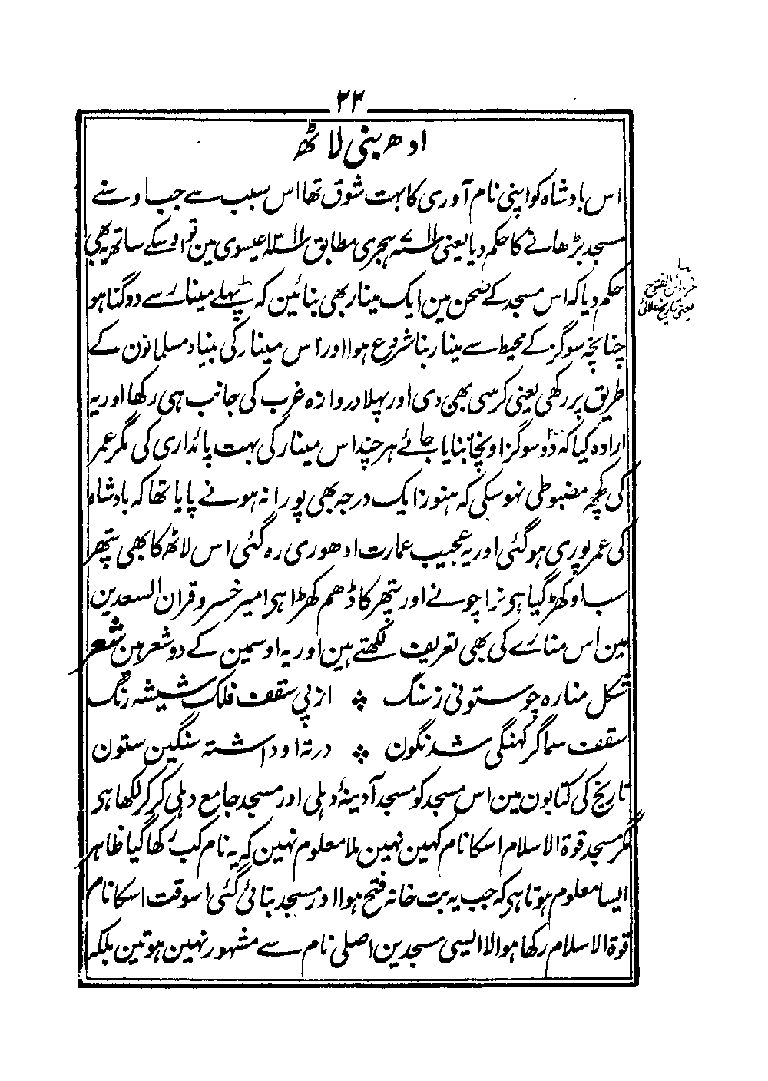 ۲۲
ادھ بنی لاٹھ
اس بادشاہ کو اپنی نام آوری کا بہت شوق تھا اس سبب سے جب اوسنے
مسجد بڑھانے کا حکم دیا یعنی سنہ ہجری مطابق سنہ عیسوی مین تو اوسکے ساتھ یہ بھی
حکم دیا کہ اس مسجد کے صحن مین ایک مینار بھی بنائین کہ پہلے مینار سے دوگنا ہو
چنانچہ سو گز کے محیط سے مینار بنا شروع ہوا اور اس مینار کی بنیاد مسلمانون کے
طریق پر رکھی یعنی کرسی بھی دی اور پہلا دروازہ غرب کی جانب ہی رکھا اور یہ
ارادہ کیا کہ دو سو گز اونچا بنایا جائے ہر چند اس مینار کی بہت پائداری کی مگر عمر
کی کچھ مضبوطی نہوسکی کہ ہنوز ایک درجہ بھی پورا نہ ہونے پایا تھا کہ بادشاہ
کی عمر پوری ہوگئی اور یہ عجیب عمارت ادھوری رہ گئی اس لاٹھ کا بھی پتھر
سب اوکھڑ گیا ہی نرا چونے اور پتھر کا ڈھم کھڑا ہی امیر خسرو قران السعدین
مین اس منارے کی بھی تعریف لکھتے ہین اور یہ اوسمین کے دو شعر ہین شعر
شکل منارہ چو ستونی ز سنگ ٭ از پی سقف فلک شیشہ رنگ
سقف سما گر کہنگی شد نگون ٭ در تہ او داشتہ سنگین ستون
تاریخ کی کتابون مین اس مسجد کو مسجد آدینۂ دہلی اور مسجد جامع دہلی کر کر لکھا ہی
مگر مسجد قوۃ الاسلام اسکا نام کہین نہین ملا معلوم نہین کہ یہ نام کب رکھا گیا ظاہر
ایسا معلوم ہوتا ہی کہ جب یہ بت خانہ فتح ہوا اور مسجد بنائی گئی اسوقت اسکا نام
قوۃ الاسلام رکھا ہو الا ایسی مسجدین اصلی نام سے مشہور نہین ہوتین بلکہ
خزائن الفتوح
یعنی تاریخ علائی